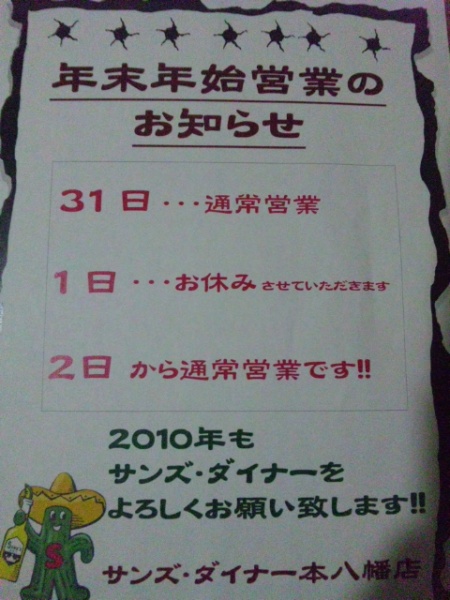 年末年始営業の
お知らせ
31日・・・通常営業
1日・・・お休みさせていただきます
2日から通常営業です!!
2010年も
サンズ・ダイナーを
よろしくお願い致します!!
S
サンズ・ダイナー本八幡店